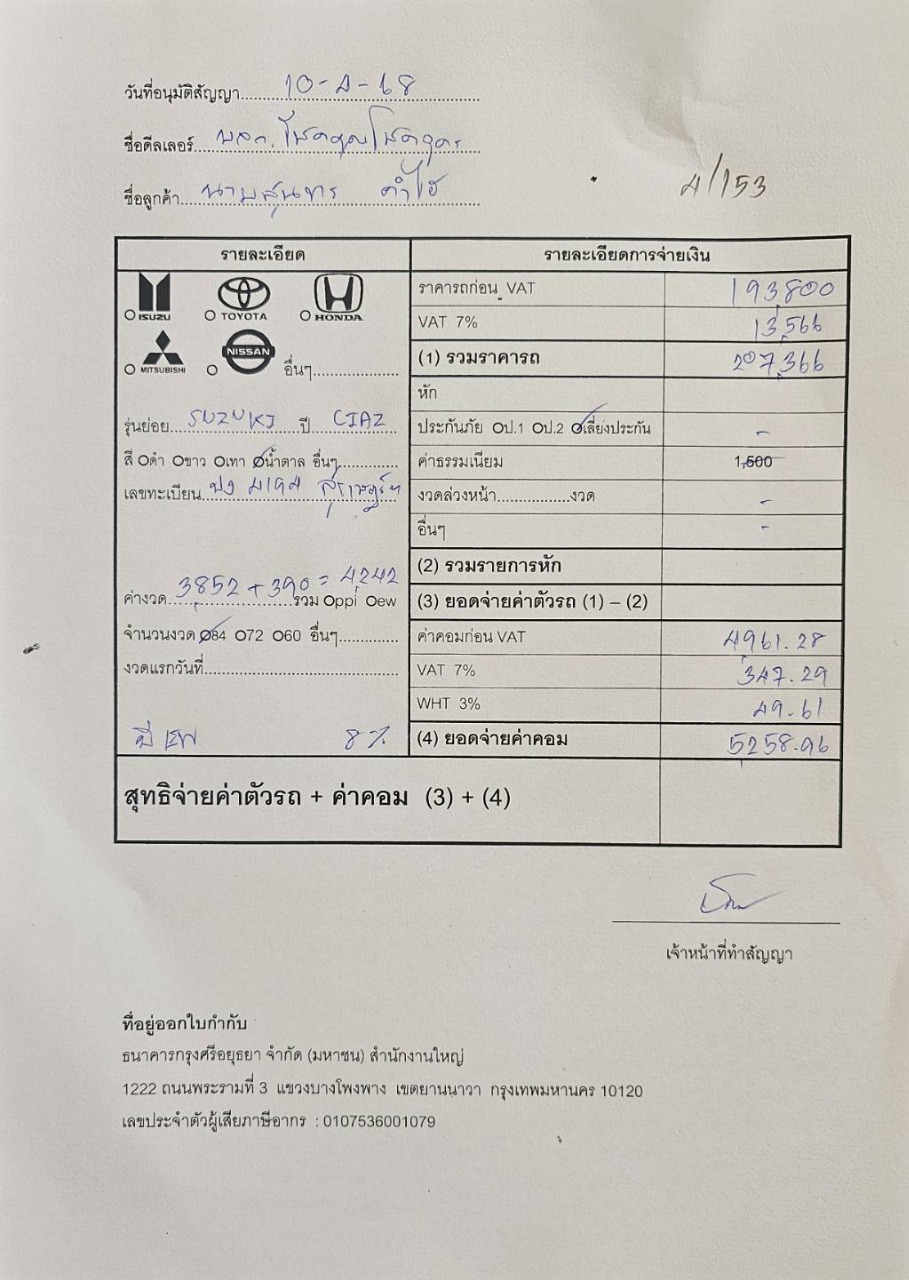 วันที่อนุมัติสัญญา 10-4-68
ชื่อดีลเลอร์ บลก. โชคคูณโชค
ชื่อลูกค้า
4/153
รายละเอียด
รายละเอียดการจ่ายเงิน
ISUZU TOYOTA HONDA
MITSUBISHI NISSAN อื่นๆ
รุ่นย่อย SUZUKI ปี CIAZ
สี ดำ ขาว เทา น้ำตาล อื่นๆ
เลขทะเบียน 4194 สุราษฎร์ฯ
ค่างวด 3852 + 390 = 4242 รวม ppi ew
จำนวนงวด 84 72 60 อื่นๆ
งวดแรกวันที่
8%
ราคารถก่อน VAT 193,800
VAT 7% 13,566
(1) รวมราคารถ 207,366
หัก
ประกันภัย ป.1 ป.2 เลี่ยงประกัน -
ค่าธรรมเนียม 1,500
งวดล่วงหน้า งวด -
อื่นๆ -
(2) รวมรายการหัก
(3) ยอดจ่ายค่าตัวรถ (1) – (2)
ค่าคอมก่อน VAT 4961.28
VAT 7% 347.29
WHT 3%
(4) ยอดจ่ายค่าคอม 5258.96
สุทธิจ่ายค่าตัวรถ + ค่าคอม (3) + (4)
เจ้าหน้าที่ทำสัญญา
ที่อยู่ออกใบกำกับ
ธนาคารกรุงศรีอยุธยา จำกัด (มหาชน) สำนักงานใหญ่
1222 ถนนพระรามที่ 3 แขวงบางโพงพาง เขตยานนาวา กรุงเทพมหานคร 10120
เลขประจำตัวผู้เสียภาษีอากร : 0107536001079